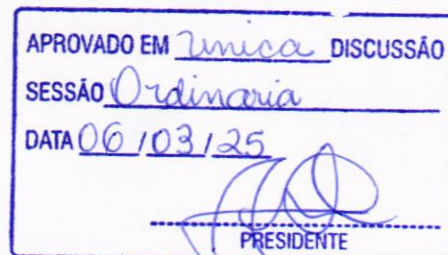 APROVADO EM Unica DISCUSSÃO
SESSÃO Ordinaria
DATA 06/03/25
PRESIDENTE